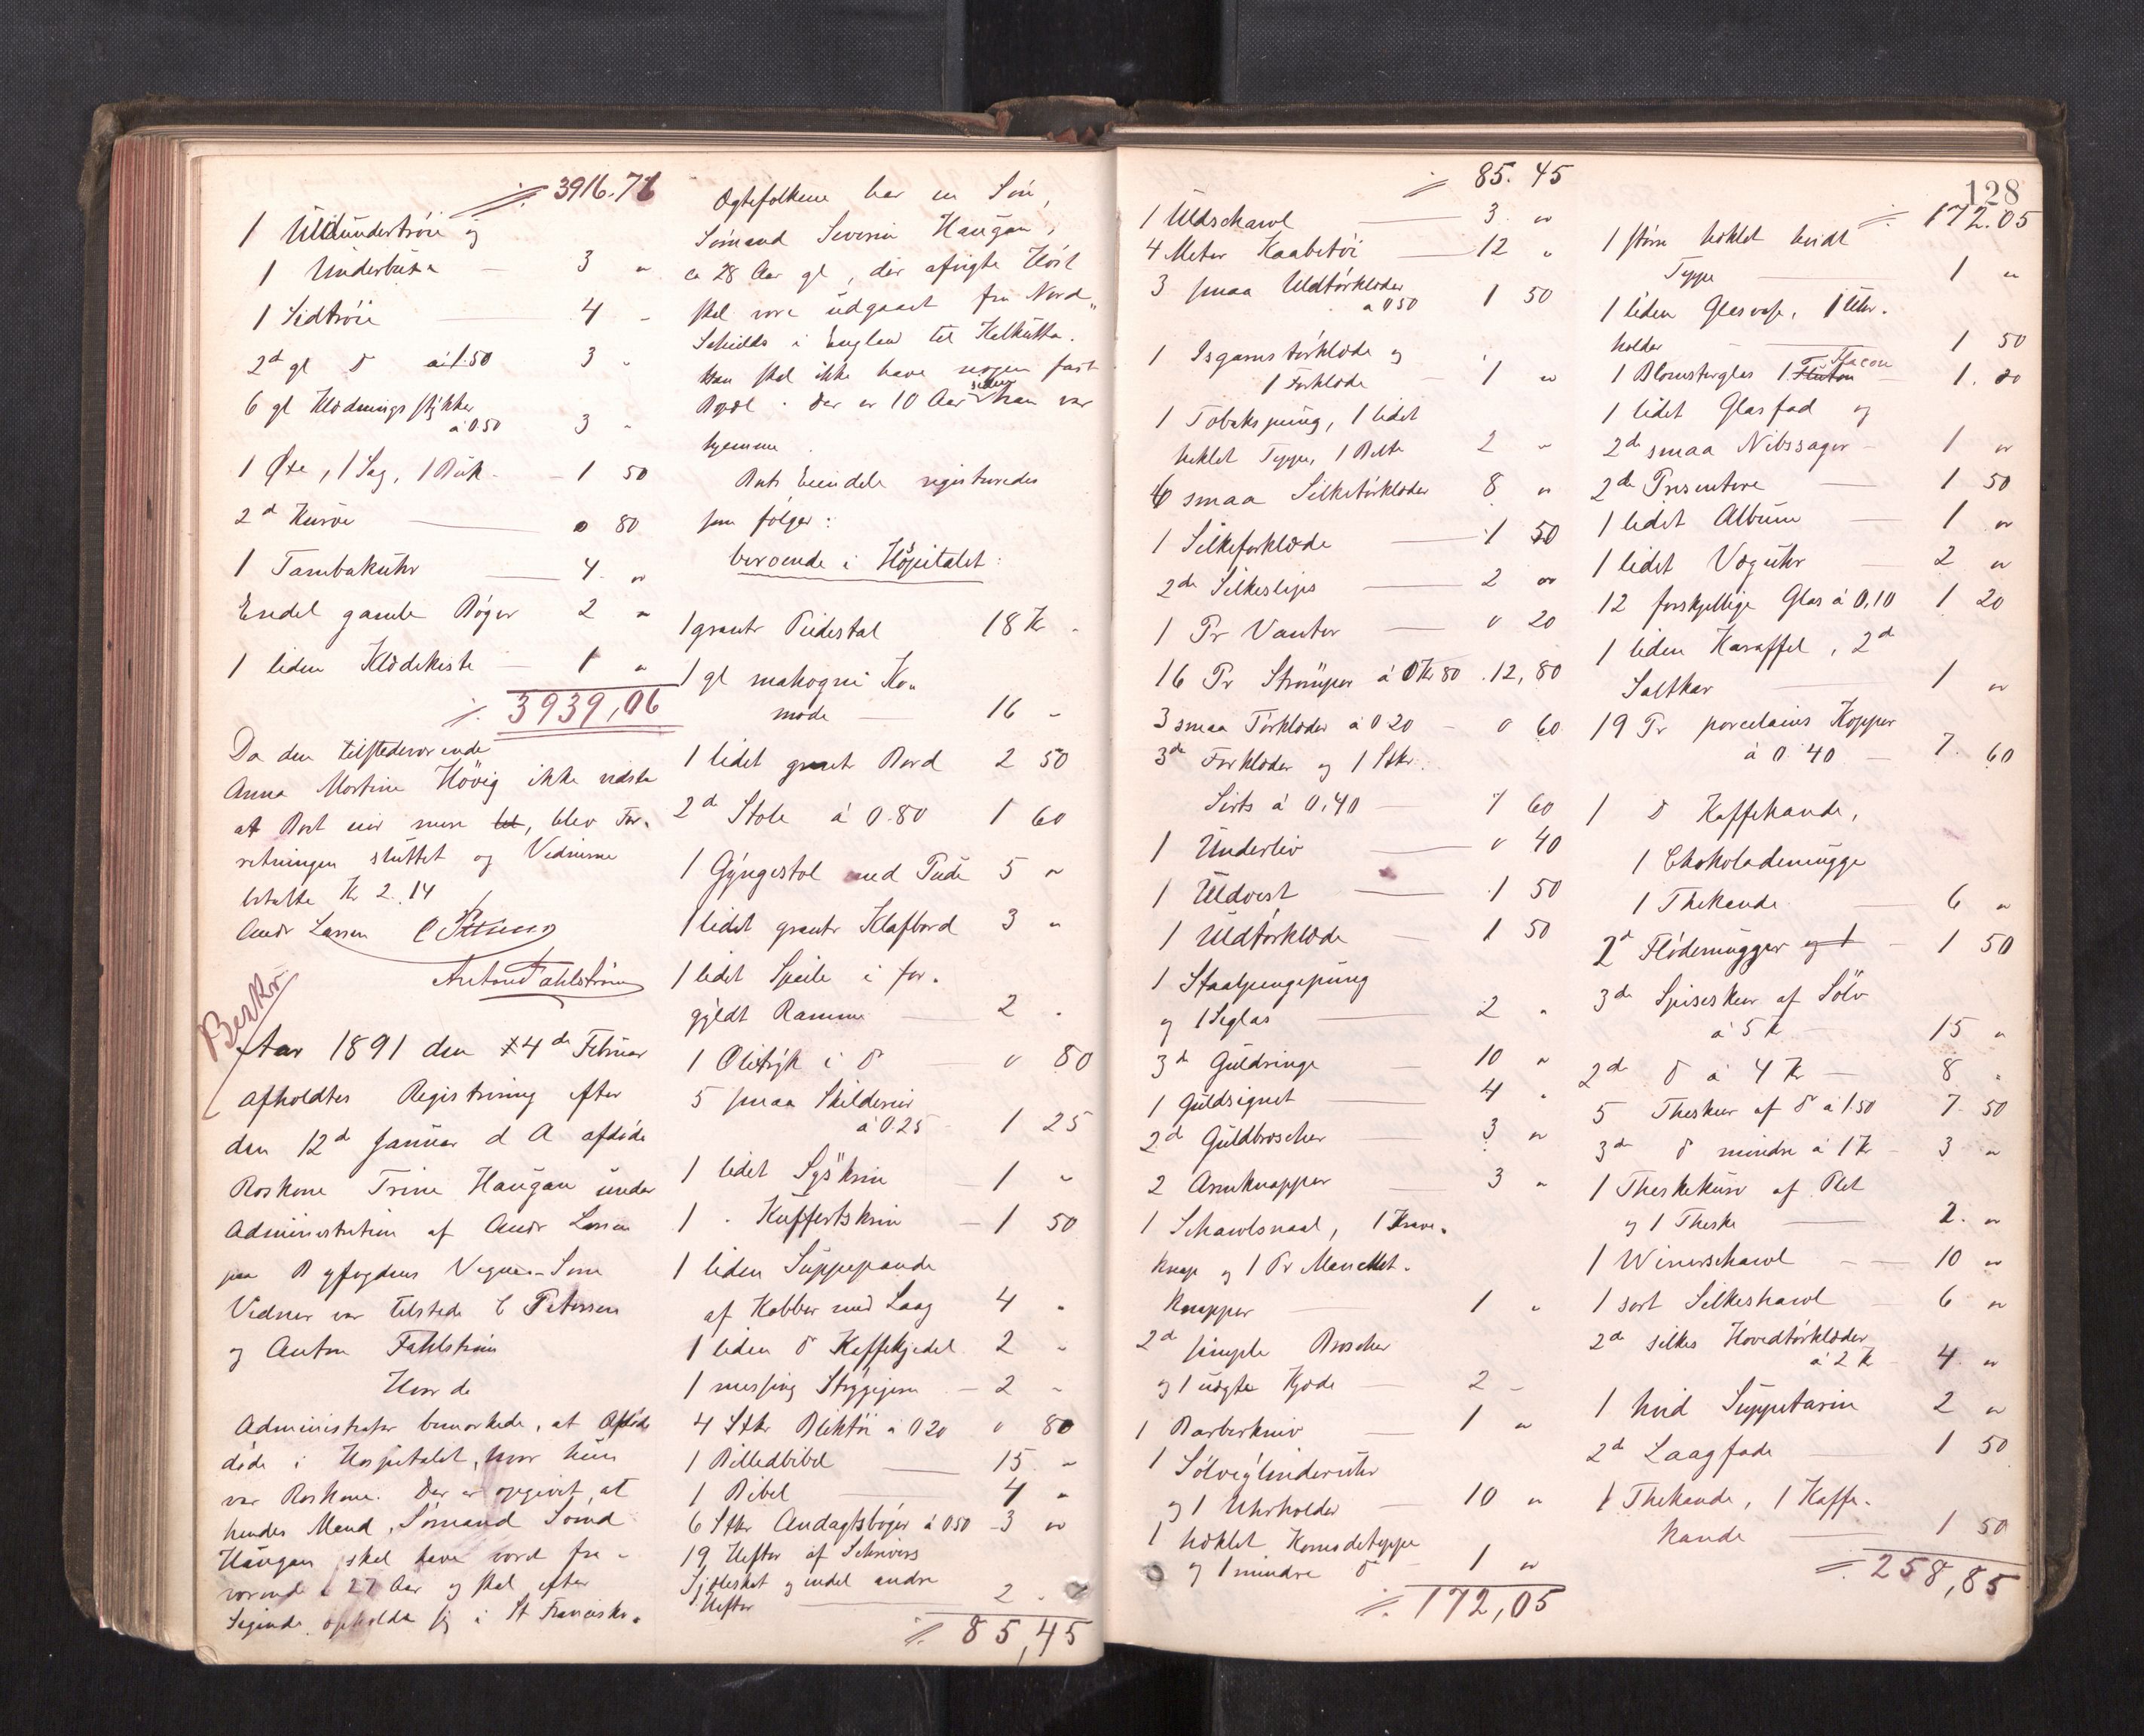 3916.76
1 Uldundertröie og
1 Underbuxe — 3 "
1 Sidtröie — 4 "
2d gl d à 1.50 3 "
6 gl Klædningsstykker
à 0.50 3 "
1 Öxe, 1 Sag, 1 — 1 50
2d Kurve — " 80
1 Tambakuhr — 4 "
Endel gamle Böger 2 "
1 liden Klædekiste — 1 "
3939,06
Da den tilstedeværende
Anna Martine Hövig ikke vidste
at Boet eier mere, blev For-
retningen sluttet og Vidnerne
betalte Kr 2.14
Andr Larsen C Petersen
Anton Fahlström
Aar 1891 den 4de Februar
afholdtes Registrering efter
den 12d Januar d A afdöde
Roskone Trine Haugan under
Administration af Andr Larsen
paa Byfogdens Vegne. Som
Vidner var tilstede C Petersen
og Anton Fahlström
Hvor da
Administrator bemærkede, at Afdöde
döde i Hospitalet, hvor hun
var Roskone. Der er opgivet, at
hendes Mand, Sömand Svend
Haugan skal have været fra-
værende i 27 Aar og skal efter
Sigende opholde sig i St Francisko.
Ægtefolkene har en Sön,
Sömand Severin Haugan,
ca 28 Aar gl, der afvigte Höst
skal være udgaaet fra Nord-
Schields i England til Kalkutta.
Han skal ikke have nogen fast
Bopæl. Der er 10 Aar siden han var
hjemme.
Boets Eiendele registreredes
som fölger:
beroende i Hospitalet:
1 granet Pidestal 18 Kr "
1 gl mahogni Ko-
mode — 16 "
1 lidet granet Bord 2 50
2d Stole à 0.80 1 60
1 Gyngestol med Pude 5 "
1 lidet granet Klafbord 3 "
1 lidet Speile i for-
gyldt Ramme — 2 "
1 Olietryk i d — " 80
5 smaa Skilderier
à 0.25 1 25
1 lidet Syskrin — 1 "
1 " Kuffertskrin — 1 50
1 liden Suppepande
af Kobber med Laag 4 "
1 liden d Kaffekjedel 2 "
1 messing Strygejern — 2 "
4 Stkr Bliktöi à 0 20 " 80
1 Billedbibel — 15 "
1 Bibel — 4 "
6 Stkr Andagtsböger à 0 50 — 3 "
19 Hefter af Schrivers
Sjæleskat og endel andre
Hefter — 2 "
85,45
85.45
1 Uldschawl — 3 "
4 Meter Kaabetöi — 12 "
3 smaa Uldtörklæder
à 0 50 1 50
1 Isgarnstörklæde og
1 Forklæde — 1 "
1 Tobakspung, 1 lidet
heklet Teppe, 1 Belte 2 "
6 smaa Silketörklæder 8 "
1 Silkeforklæde — 1 50
2de Silkeslips — 2 "
1 Pr Vanter — " 20
16 Pr Strömper à 0 Kr 80 12,80
3 smaa Törklæder à 0 20 — " 60
3de Forklæder og 1 Stkr.
Sirts à 0,40 — 1 60
1 Underliv — " 40
1 Uldvest — 1 50
1 Uldtörklæde — 1 50
1 Staalpengepung
og 1 Seglas — 2 "
3de Guldringe — 10 "
1 Guldsignet — 4 "
2d Guldbroscher — 3 "
2 Armknapper — 3 "
1 Schawlsnaal, 1 Krave-
knap og 1 Pr Manchet-
knapper — 1 "
2d simple Broscher
og 1 uægte Kjæde — 2 "
1 Barberkniv — 1 "
1 Sölvcylinderuhr
og 1 Uhrholder — 10 "
1 heklet Komodeteppe
og 1 mindre d — 1 "
172,05
128
172.05
1 större heklet hvidt
Teppe — 1 "
1 liden Glasvase, 1 Uhr-
holder — 1 50
1 Blomsterglas 1 Flacon — 1. 20
1 lidet Glasfad og
2de smaa Nibssager — 1 "
2de Presentere — 1 50
1 lidet Album — 1 "
1 lidet Væguhr — 2 "
12 forskjellige Glas à 0,10 1 20
1 liden Karaffel, 2d
Saltkar — 1 "
19 Pr porcelains Kopper
à 0 40 — 7. 60
1 d Kaffekande,
1 Chokolademugge
1 Thekande — 6 "
2d Flödemugger og 1 — 1 50
3de Spiseskeer af Sölv
à 5 K — 15 "
2de d à 4 Kr — 8 "
5 Theskeer af d à 1.50 7. 50
3de d mindre à 1 Kr — 3 "
1 Theskekurv af Plet
og 1 Theske — 2. "
1 Winerschawl — 10 "
1 sort Silkeshawl 6 "
2de silkes Hovedtörklæder
à 2 K 4. "
1 hvid Suppeterin 2 "
2d Laagfade — 1 50
1 Thekande, 1 Kaffe-
kande — 1 50
258,85